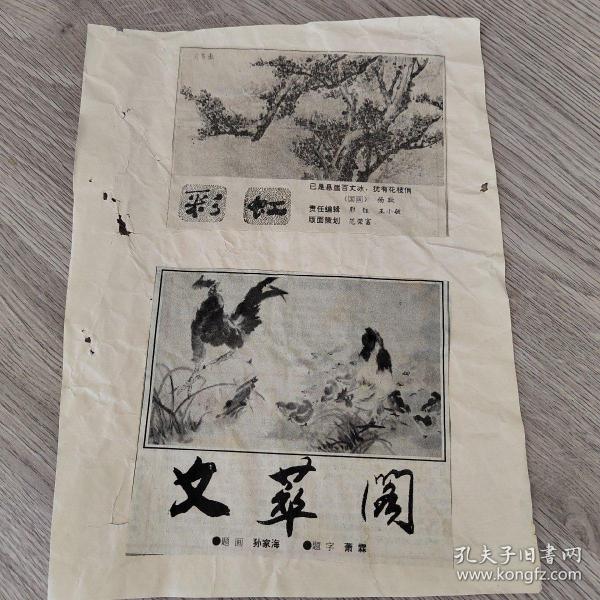 彩虹
已是悬崖百丈冰，犹有花枝俏
（国画） 杨
责任编辑 王小敏
版面策划 范荣富
文萃阁
●题画 孙家海 ●题字 萧霖
孔夫子旧书网
www.kongfz.com